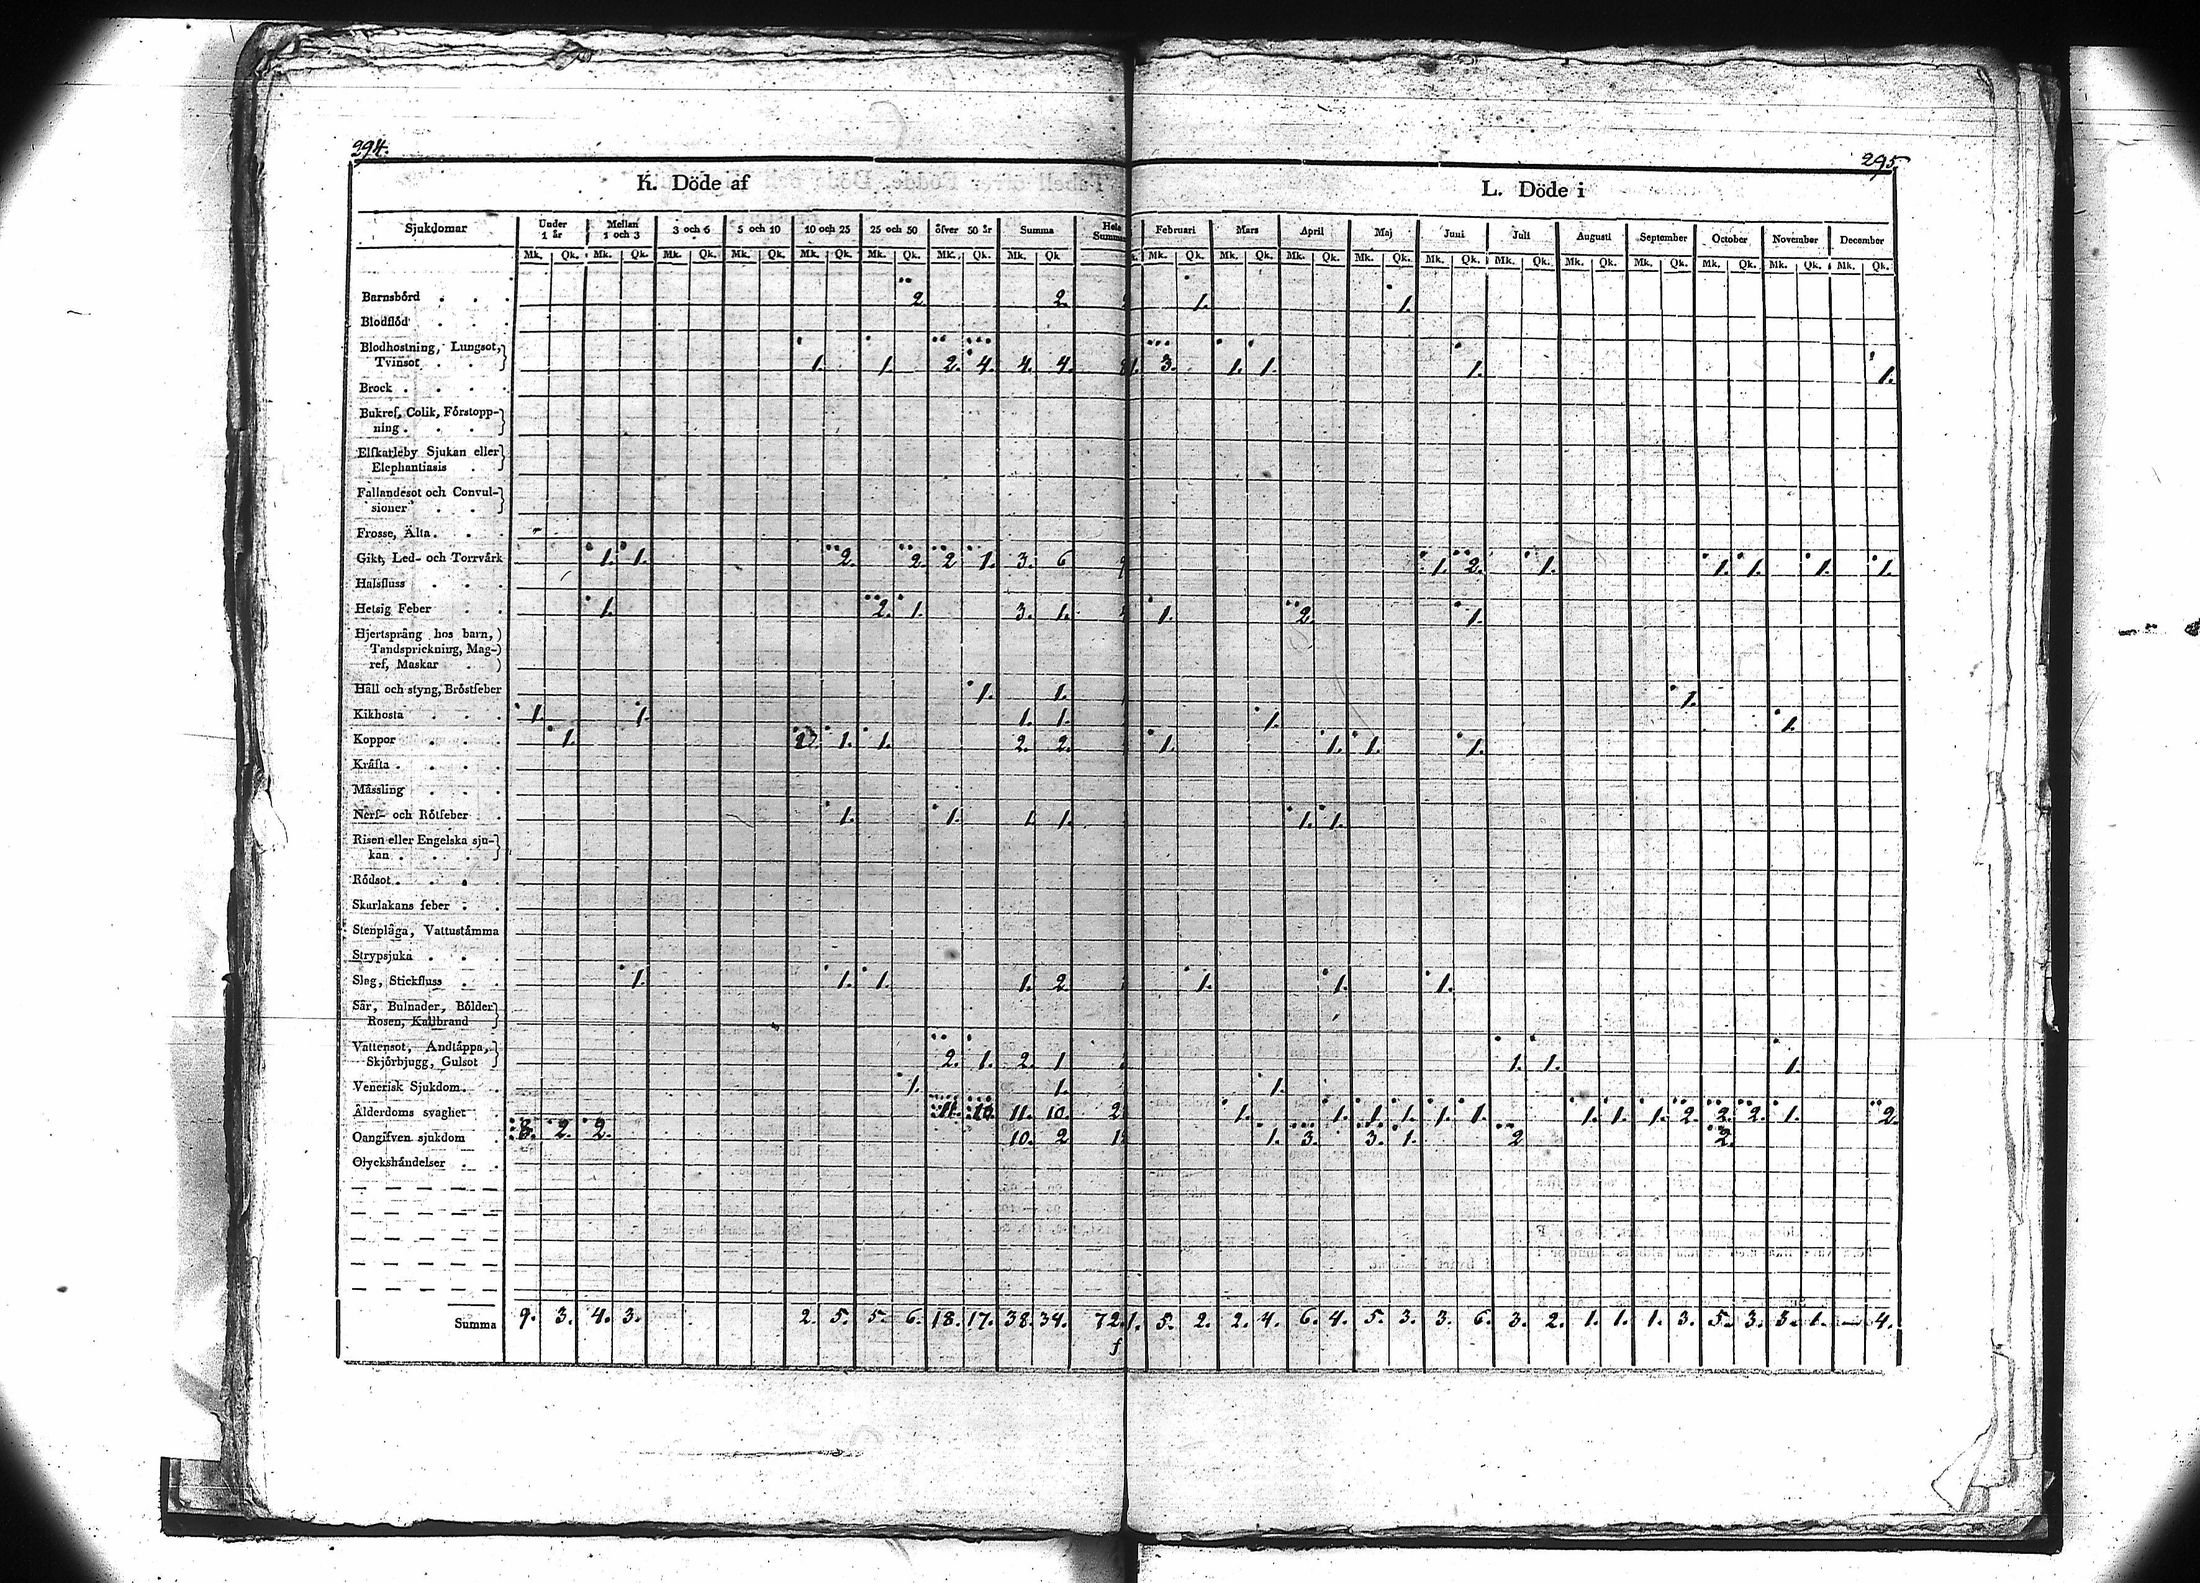 294.
295.
K. Döde af
L. Döde i
Sjukdomar Under 1 år Mellan 1 och 3 3 och 6 5 och 10 10 och 25 25 och 50 öfver 50 år Summa Hela Summan Februari Mars April Maj Juni Juli Augusti September October November December
Mk. Qk. Mk. Qk. Mk. Qk. Mk. Qk. Mk. Qk. Mk. Qk. Mk. Qk. Mk. Qk Mk. Qk. Mk. Qk. Mk. Qk. Mk. Qk. Mk. Qk. Mk. Qk. Mk. Qk. Mk. Qk. Mk. Qk. Mk. Qk. Mk. Qk.
Barnsbörd . . . 2 2. 1. 1.
Blodflöd . . .
Blodhostning, Lungsot,
Tvinsot . . 1. 1. 2. 4. 4. 4. 1. 3. 1. 1. 1. 1.
Brock . . . .
Bukref, Colik, Förstopp-
ning . . .
Elfkarleby Sjukan eller
Elephantiasis .
Fallandesot och Convul-
sioner . . .
Frosse, Älta . . .
Gikt, Led- och Torrvärk 1. 1. 2. 2. 2 1. 3. 6 9 1. 2. 1. 1. 1. 1. 1.
Halsfluss . . .
Hetsig Feber . . 1. 2. 1. 3. 1. 1. 2. 1.
Hjertsprång hos barn,
Tandsprickning, Mag-
ref, Maskar .
Håll och styng, Bröstfeber 1. 1. 1.
Kikhosta . . . 1. 1. 1. 1. 1. 1.
Koppor . . . 1. 2. 1. 1. 2. 2. 1. 1. 1. 1.
Kräfta . . . .
Mässling . . .
Nerf- och Rötfeber . 1. 1. 1. 1. 1. 1.
Risen eller Engelska sju-
kan . . . .
Rödsot . . . .
Skarlakans feber . .
Stenplåga, Vattustämma
Strypsjuka . . .
Slag, Stickfluss . . 1. 1. 1. 1. 2. 1. 1. 1.
Sår, Bulnader, Bölder
Rosen, Kallbrand
Vattensot, Andtäppa,
Skjörbjugg, Gulsot 2. 1. 2. 1 1. 1. 1.
Venerisk Sjukdom . . 1. 1. 1.
Ålderdoms svaghet . 11. 10. 11. 10. 2 1. 1. 1. 1. 1. 1. 1. 1. 1. 2. 2. 2. 1. 2.
Oangifven sjukdom . 8. 2. 2. 10. 2 1 1. 3. 3. 1. 2 2.
Olyckshändelser . .
Summa 9. 3. 4. 3. 2. 5. 5. 6. 18. 17. 38. 34. 72. 1. 5. 2. 2. 4. 6. 4. 5. 3. 3. 6. 3. 2. 1. 1. 1. 3. 5. 3. 3. 1. — 4.